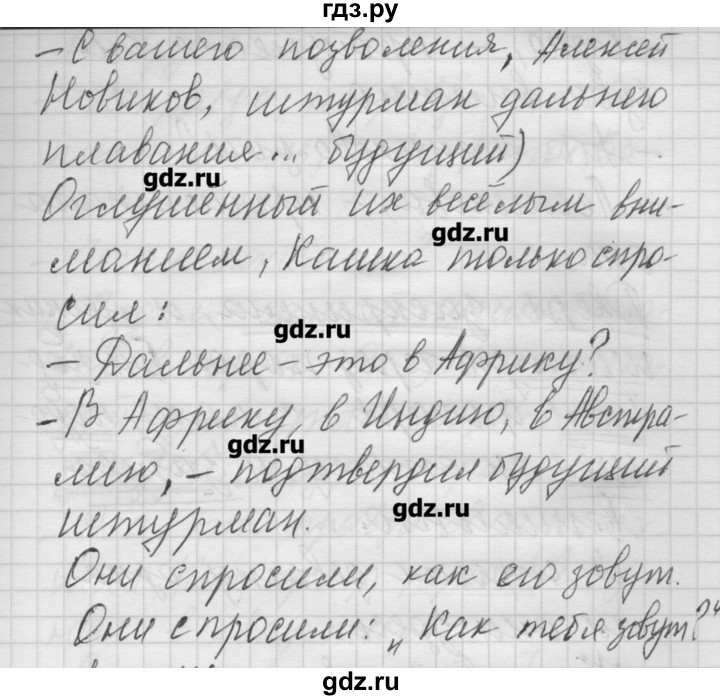 гдз.ру
– С вашего позволения, Алексей
Новиков, штурман дальнего
плавания... будущий)
gdz.ru
Оглушённый их весёлым вни-
gdz.ru
манием, Кашка только спро-
сил:
gdz.ru
– Дальнее – это в Африку?
– В Африку, в Индию, в Австра-
gdz.ru
лию, – подтвердил будущий
gdz.ru
штурман.
Они спросили, как его зовут.
Они спросили: „Как тебя зовут?“
gdz.ru